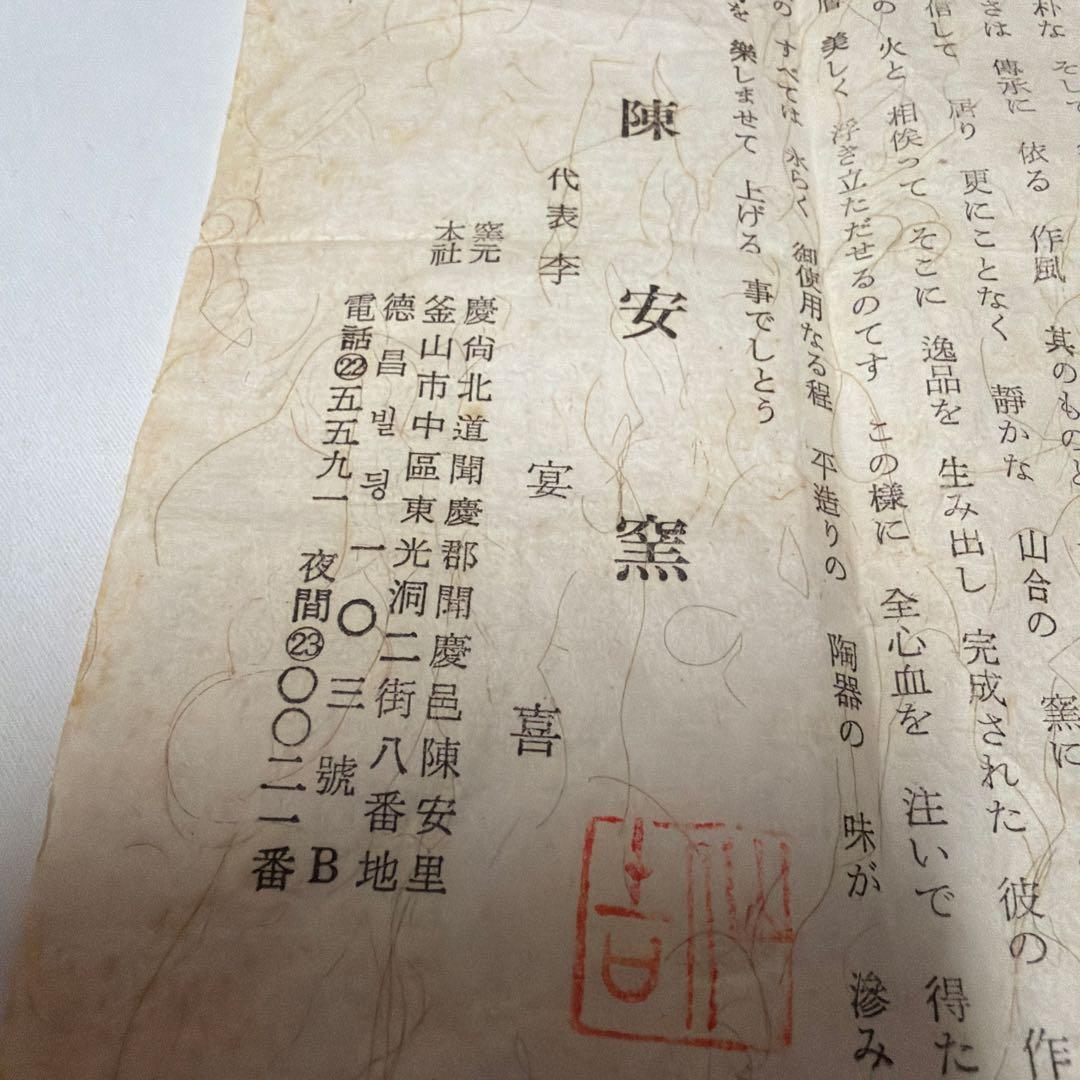 朴な そして
さは 傳承に 依る 作風 其のものと
信して 居り 更にことなく 靜かな 山合の 窯に
の 火と 相俟って そこに 逸品を 生み出し 完成された 彼の 作
美しく 浮き立だせるのてす この様に 全心血を 注いで 得た
の すべては 永らく 御使用なる程 平造りの 陶器の 味が 滲み
を 樂しませて 上げる 事でしとう
陳安窯
代表 李宴喜
窯元 慶尙北道聞慶郡聞慶邑陳安里
本社 釜山市中區東光洞二街八番地
德昌빌딍一〇三號B
電話㉒五五九一 夜間㉓〇〇二一番